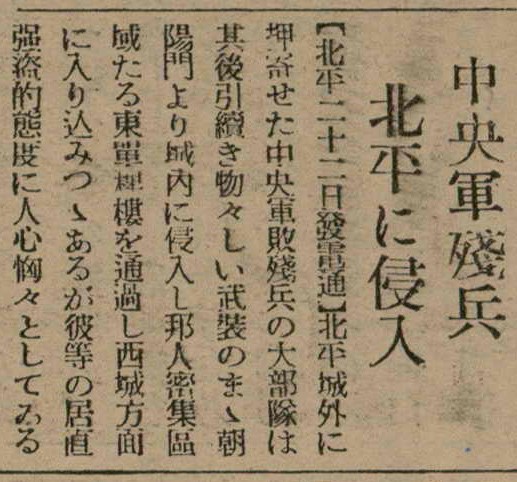 中央軍殘兵
北平に侵入
【北平二十二日發電通】北平城外に
押寄せた中央軍敗殘兵の大部隊は
其後引續き物々しい武裝のまゝ朝
陽門より城内に侵入し邦人密集區
域たる東單牌樓を通過し西城方面
に入り込みつゝあるが彼等の居直
强盜的態度に人心恟々としてゐる